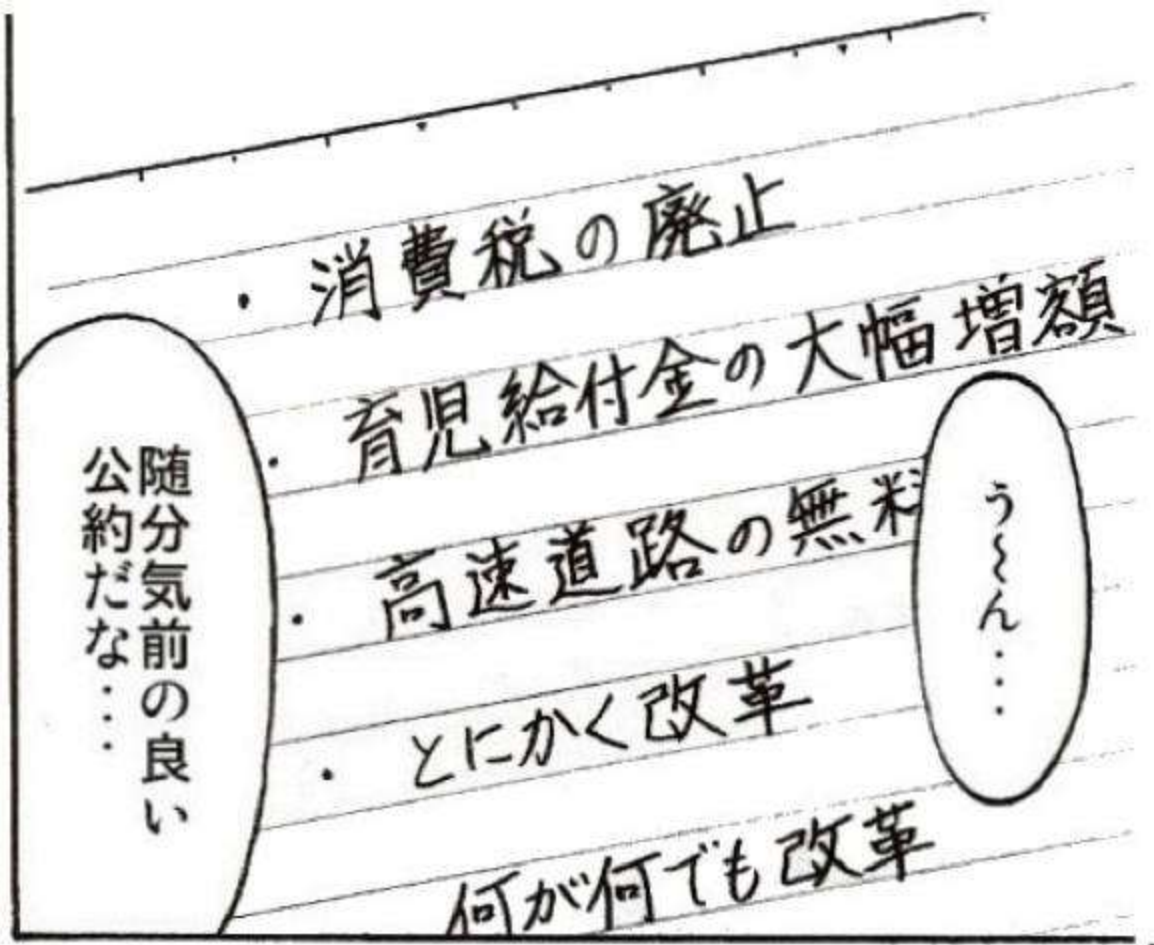 ・消費税の廃止
・育児給付金の大幅増額
・高速道路の無料
・とにかく改革
何が何でも改革
う〜ん・・・
随分気前の良い
公約だな・・・